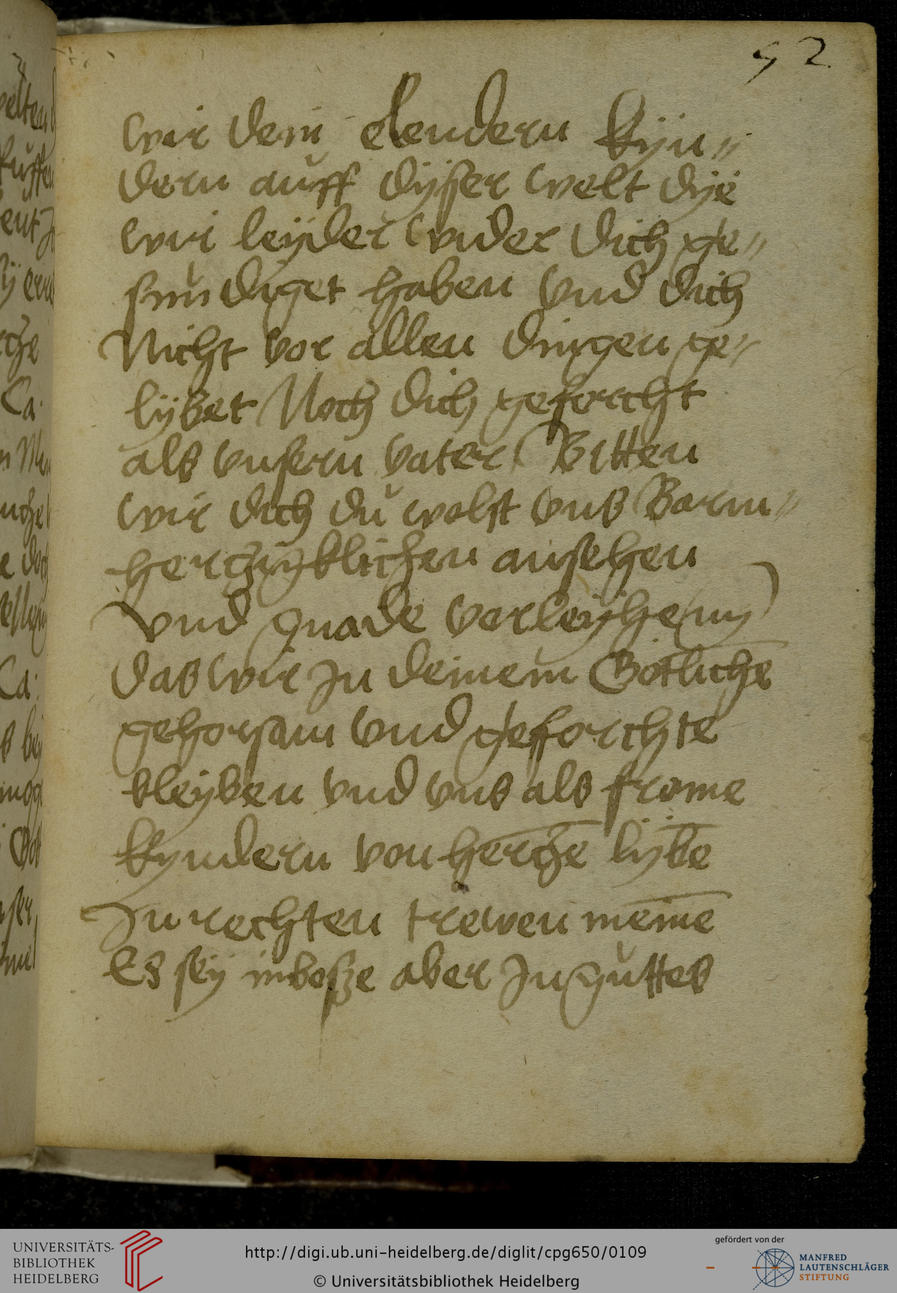 52
wir dein elendern kyn„
dern auff dyßer welt dÿe
wir leÿder wider dich ge„
sundiget haben vnd dich
Nicht vor allen dingen ge„
lybet Noch dich geforcht
als vnsern vater Bitten
wir dich du wolst vns Barm„
herczyklichen ansehen
vnd gnade verleyhe(nn)
das wir Jn deinem Gotliche
gehorsam vnd geforchte
bleyben vnd vns als frome
kyndern von hercze lÿbe
Jn rechten trewen meine
Es sey in boße aber Jn guttes
UNIVERSITÄTS-
BIBLIOTHEK
HEIDELBERG
http://digi.ub.uni-heidelberg.de/diglit/cpg650/0109
© Universitätsbibliothek Heidelberg
gefördert von der
MANFRED
LAUTENSCHLÄGER
STIFTUNG